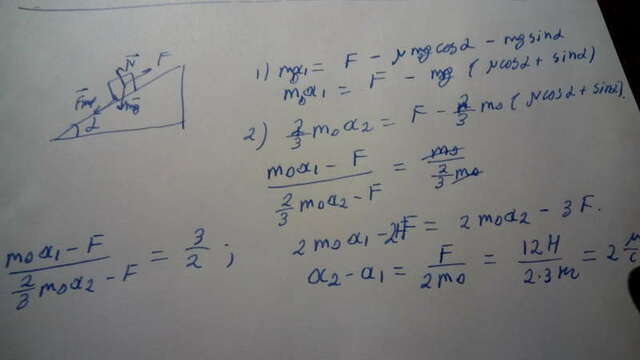 N⃗
F⃗
F⃗тр
mg⃗
α
1) ma₁ = F − μmgcosα − mgsinα
m₀a₁ = F − mg (μcosα + sinα)
2) 2/3 m₀a₂ = F − 2/3 m₀ (μcosα + sinα).
(m₀a₁ − F)/(2/3 m₀a₂ − F) = m₀/(2/3 m₀)
(m₀a₁ − F)/(2/3 m₀a₂ − F) = 3/2 ;
2m₀a₁ − 2F = 2m₀a₂ − 3F.
a₂ − a₁ = F/(2m₀) = 12Н/(2·3кг) = 2 м/с